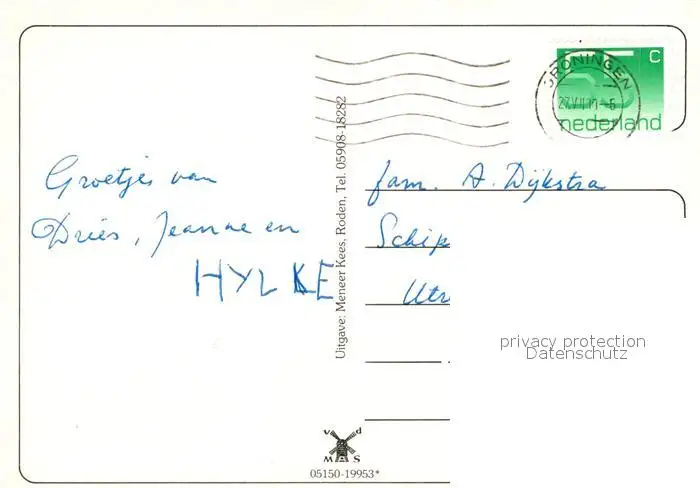 Groetjes van
Dries, Jeanne en
HYLKE
Uitgave: Meneer Kees, Roden, Tel. 05908-18282
v d
MAS
05150-19953*
GRONINGEN
C
nederland
fam. A. Dijkstra
Schip
Utr
privacy protection
Datenschutz